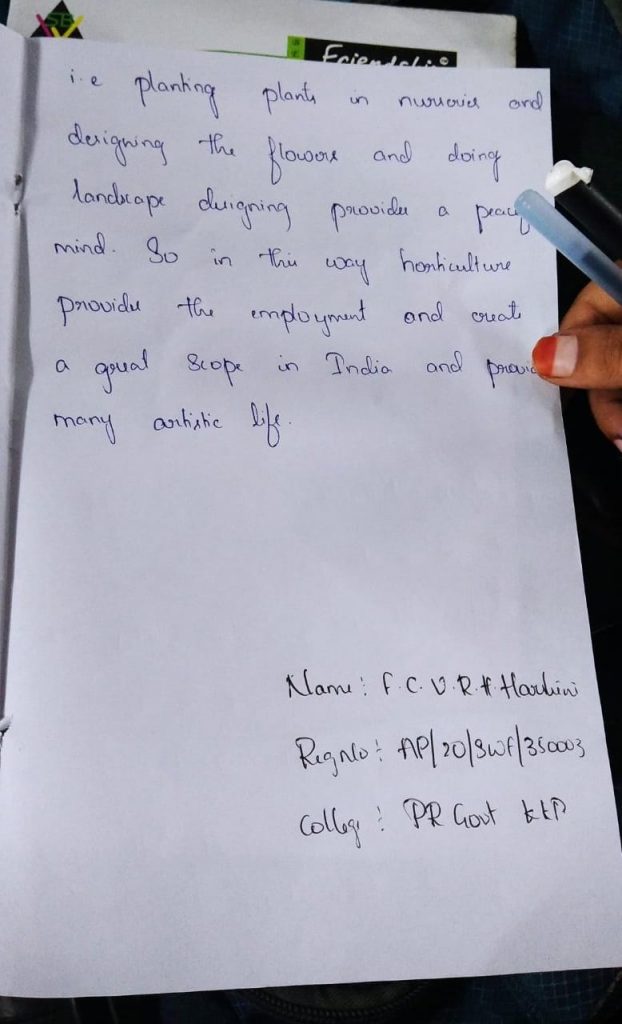 SB
Friendship©
i.e planting plants in nurseries and
designing the flowers and doing
landscape designing provides a
mind. So in this way horticulture
provides the employment and create
a great scope in India and
many artistic life.
Name: F.C.V.R.H. Harshini
Reg No: AP/20/SWF/350003
College: PR Govt KKD